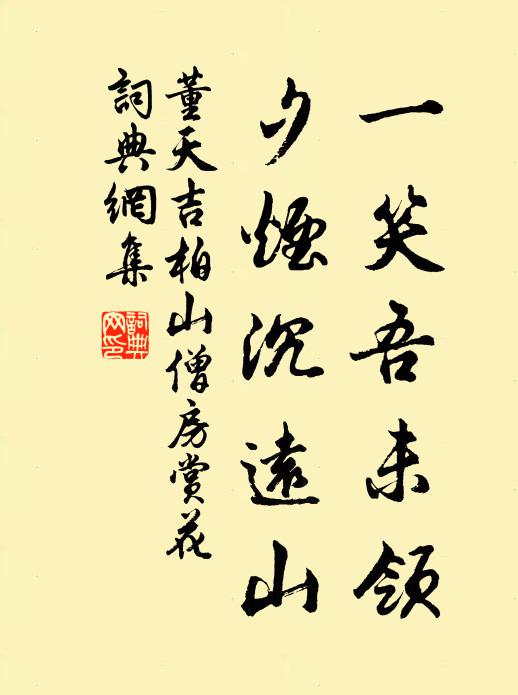 一笑吾未領
夕煙沉遠山
董天吉柏山僧房賞花
詞典網集
詞典
网印